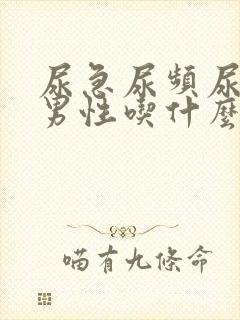 尿急尿頻尿
男性喫什麼
喵有九條命